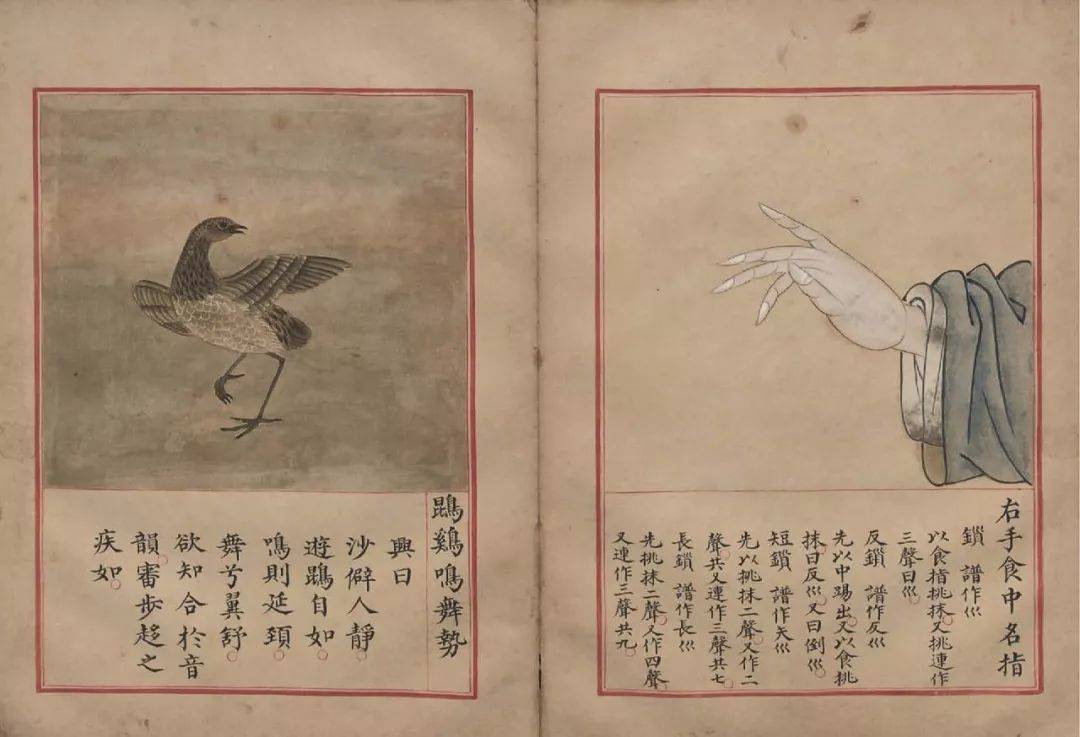 右手食中名指
鎖 譜作巛
以食指挑抹。又挑連作
三聲曰巛。
反鎖 譜作反巛
先以中踢出。又以食挑
抹曰反巛。又曰倒巛。
短鎖 譜作矢巛
先以挑抹二聲。又作二
聲。共又連作三聲共七。
長鎖 譜作長巛
先挑抹二聲。又作四聲。
又連作三聲共九。
鵾鷄鳴舞勢
興曰
沙僻人靜。
遊鵾自如。
鳴則延頸。
舞兮翼舒。
欲知合於音
韻。審步趍之
疾如。